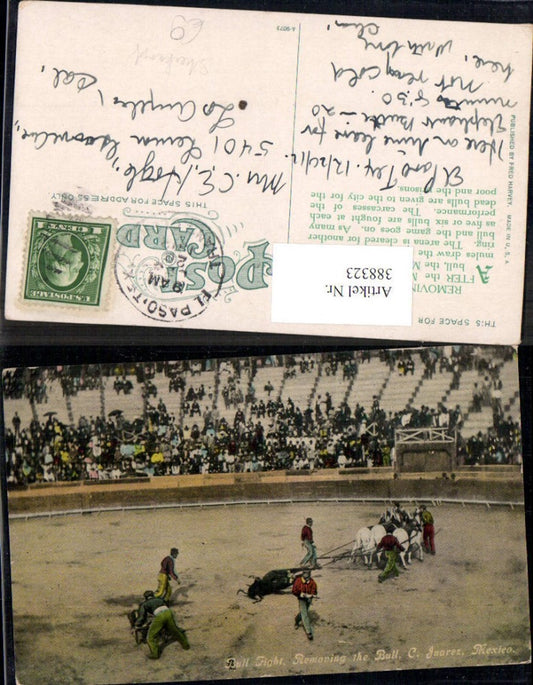 REMOVING the
AFTER the Ma
bull, the M
mules draw the
The arena is cleared for another
bull and the game goes on. As many
as five or six bulls are fought at each
performance. The carcasses of the
dead bulls are given to the city for the
and poor
THIS SPACE FOR
THIS SPACE FOR ADDRESS ONLY.
POST
CARD
PUBLISHED BY FRED HARVEY. MADE IN U.S.A.
A-9073
69
El Paso Tex. 12/20/12.
Here on time leave for
Elephant Butte — 20
minutes 8.30.
Not very cold
here,
With love
Mrs. C. E. Hogle,
5401
Los Angeles,
Cal.
U.S. POSTAGE
1 CENT 1
EL PASO, TEX
DEC 20
9 AM
Artikel Nr.
388323
Bull Fight, Removing the Bull, C. Juarez, Mexico.